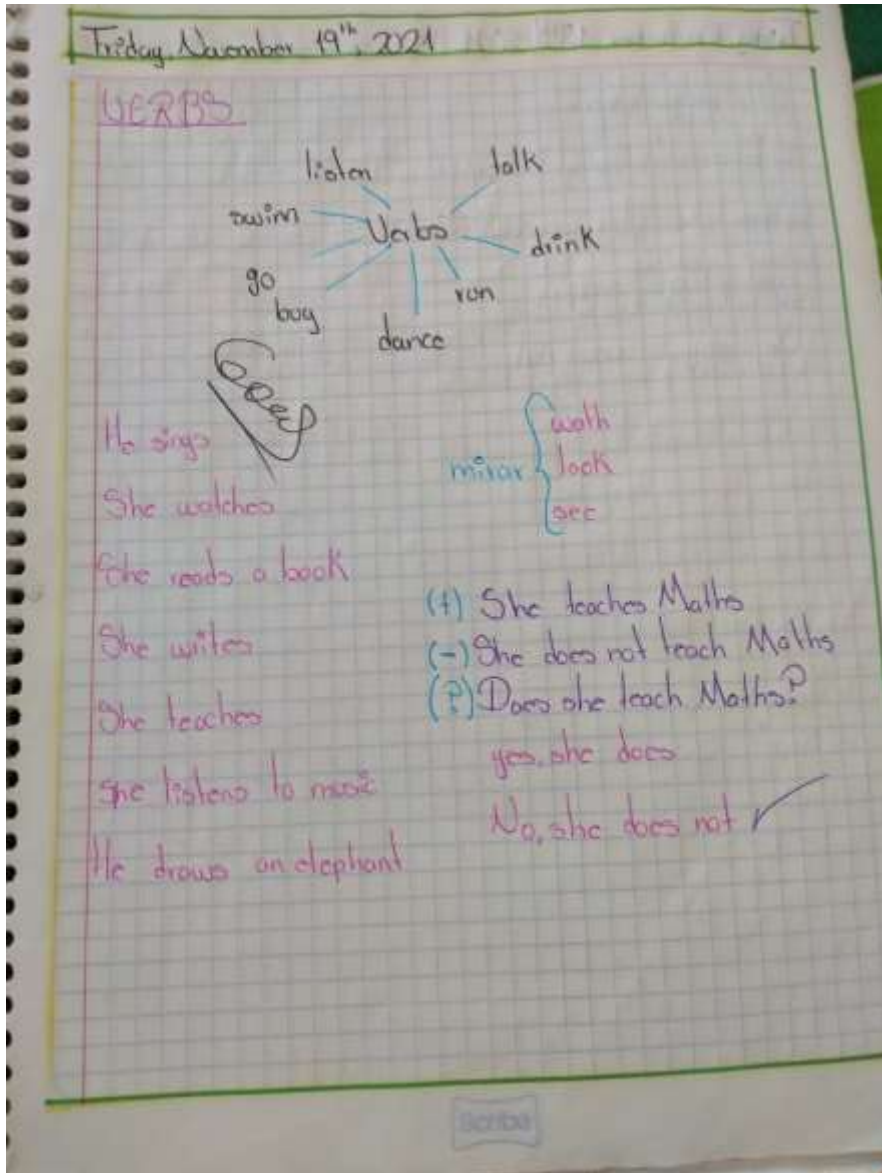 Friday, November 19th, 2021
VERBS
listen
talk
swim
Verbs
drink
go
run
buy
dance
He sings
She watches
She reads a book
She writes
She teaches
She listens to music
He draws an elephant
mirar
wath
look
see
(+) She teaches Maths
(-) She does not teach Maths
(?) Does she teach Maths?
yes, she does
No, she does not
Scribe